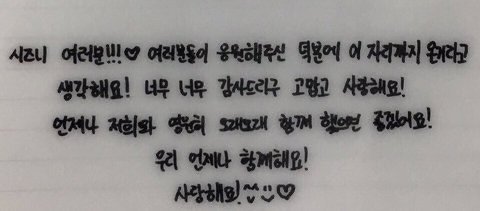 시즈니 여러분!!!♡ 여러분들이 응원해주신 덕분에 이 자리까지 온거라고
생각해요! 너무 너무 감사드리구 고맙고 사랑해요!
언제나 저희와 영원히 오래오래 함께 했으면 좋겠어요!
우리 언제나 함께해요!
사랑해요! ^^ :) ♡